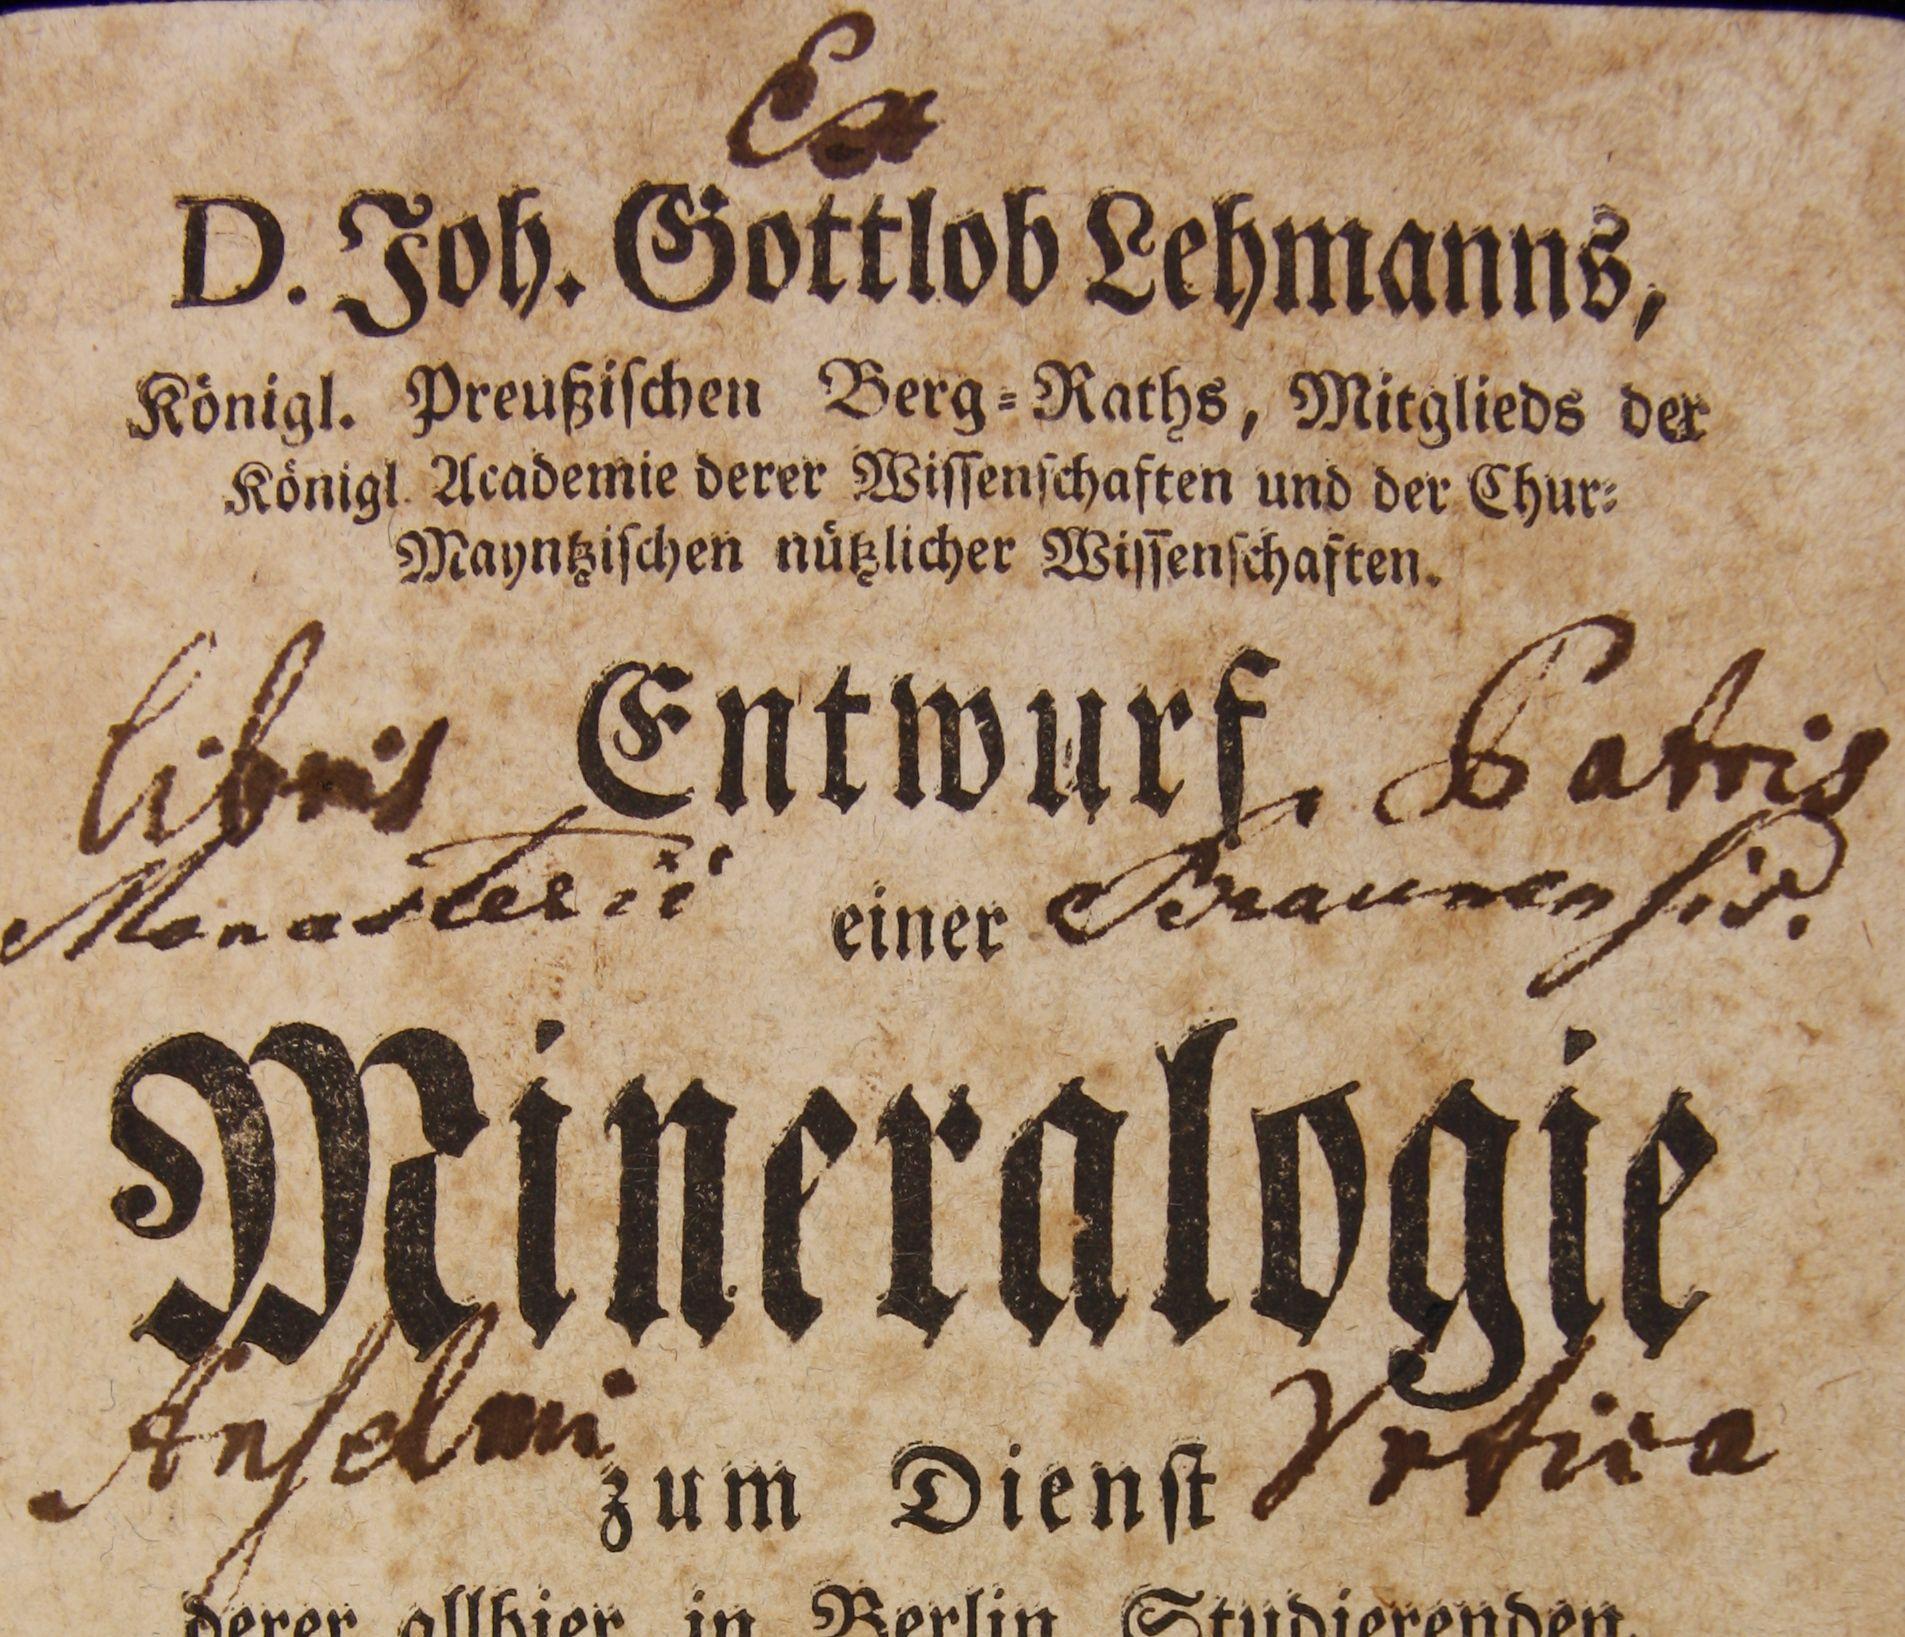 Ex
D. Joh. Gottlob Lehmanns,
Königl. Preußischen Berg=Raths, Mitglieds der
Königl. Academie derer Wissenschaften und der Chur=
Mayntzischen nützlicher Wissenschaften.
libris Entwurf, Patris
Monasterii einer Braunensis.
Mineralogie
Anselmi zum Dienst
derer allhier in Berlin Studierenden,